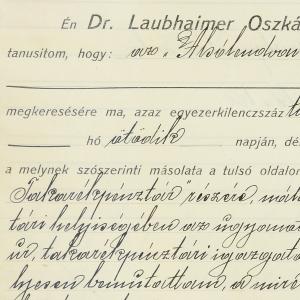 Én Dr. Laubhaimer Oszká
tanusitom, hogy: az "Alsólendvai
megkeresésére ma, azaz egyezerkilenczszáz
hó ötödik napján, dé
a melynek szószerinti másolata a tulsó oldalon
Takarékpénztár" részére,
tári helyiségében az ugyanott
úr, takarékpénztári igazgató
lyesen bemutattam, a mire